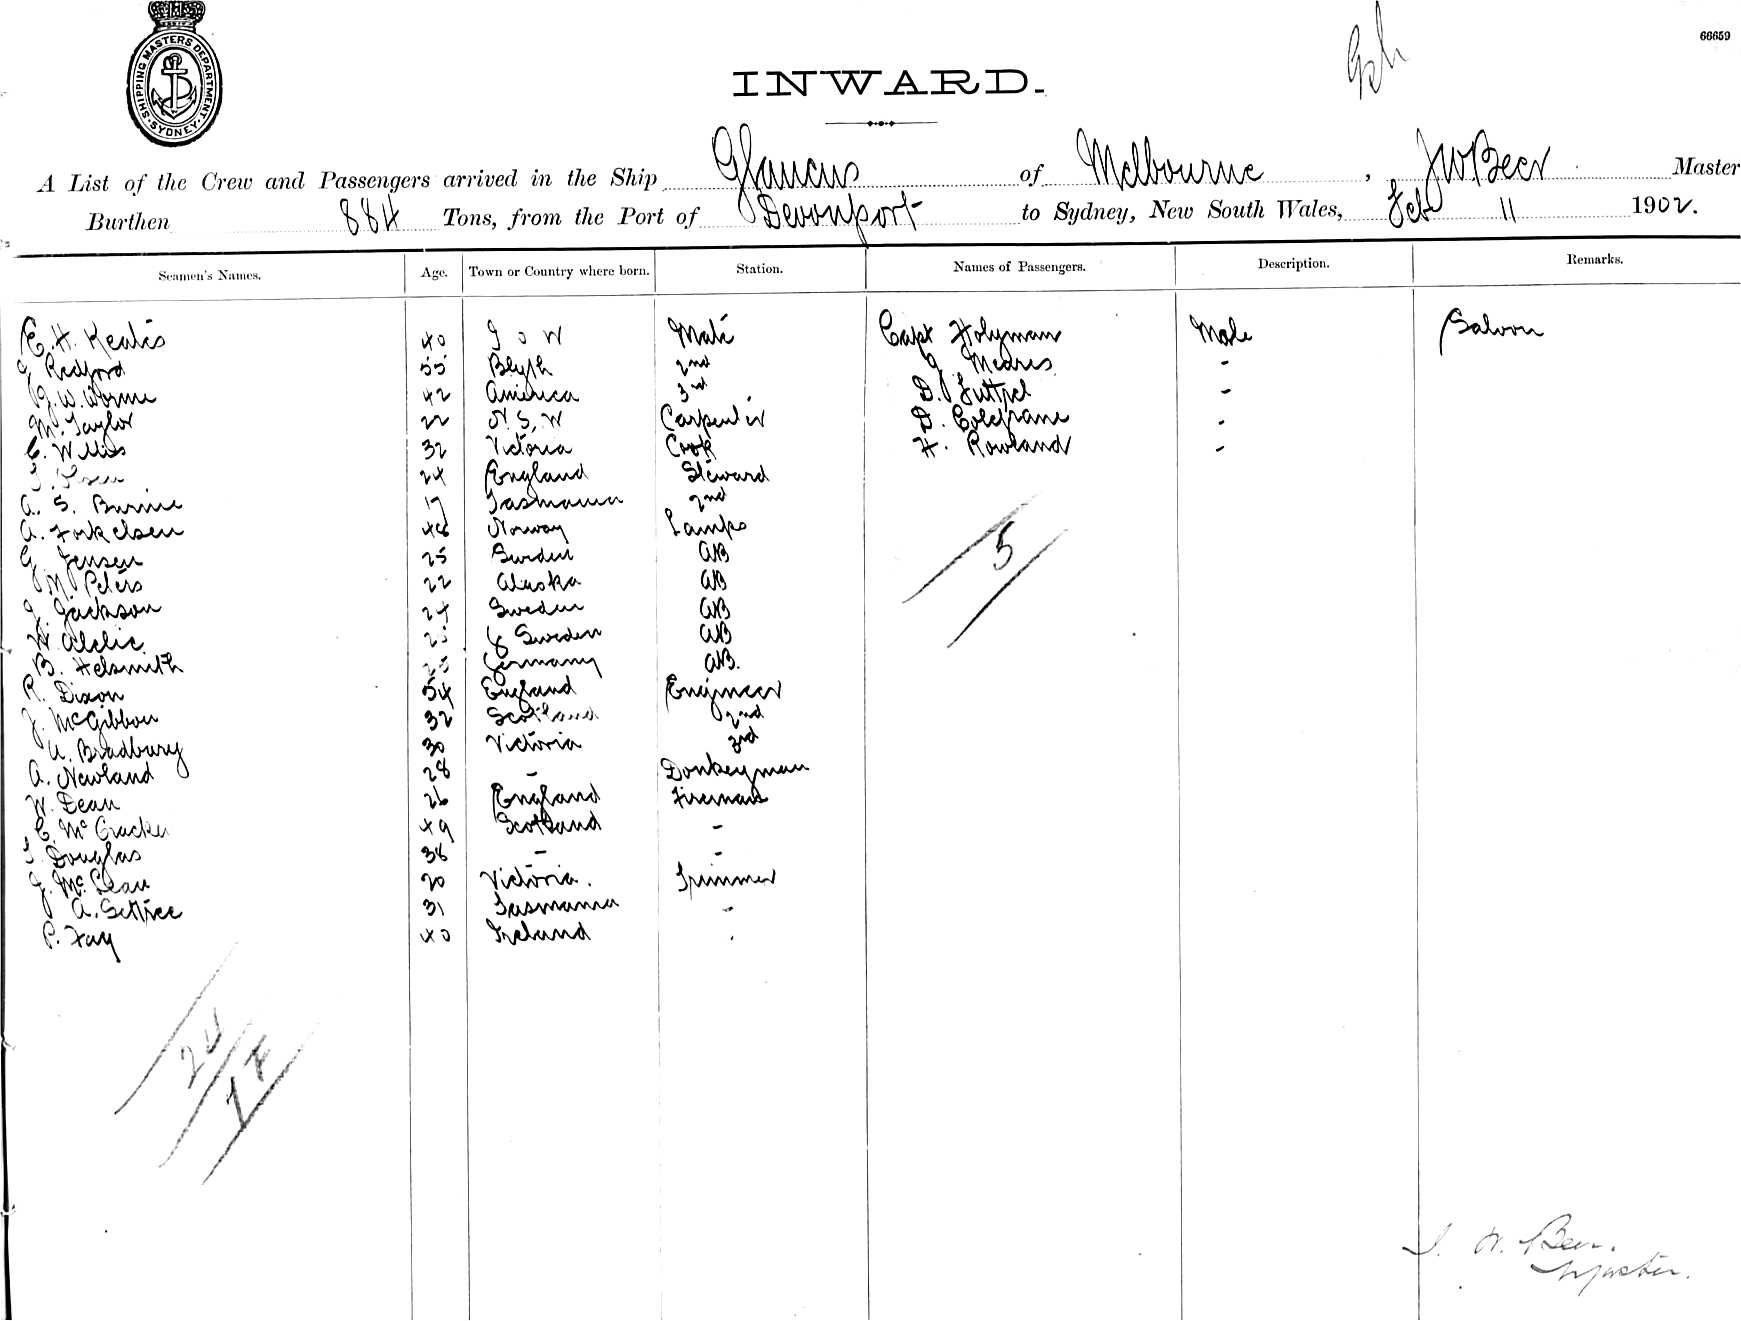 SHIPPING MASTERS DEPARTMENT
SYDNEY
66659
INWARD.
A List of the Crew and Passengers arrived in the Ship Glaucus of Melbourne, J W Beer Master
Burthen 884 Tons, from the Port of Devonport to Sydney, New South Wales, Feb 11 1902.
Seamen's Names. Age. Town or Country where born. Station. Names of Passengers. Description. Remarks.
E. H. 40 I O W Mate Capt Holyman Male Saloon
Redford 55 Blyth 2nd Meares -
W. 42 America 3rd D. -
M. Taylor 22 N. S. W Carpenter D. -
C. Willis 32 Victoria Cook H. Rowland -
24 England Steward
A. S. 17 Tasmania 2nd
A. Torkelsen 48 Norway Lamps
G. Jensen 25 Sweden AB
M. Peters 22 Alaska AB
J. Jackson 24 Sweden AB
H. Sweden AB
B. Helsmith Germany AB.
R. Dixon 54 England Engineer
J. McGibbon 32 Scotland 2nd
A. Bradbury 30 Victoria 3rd
A. Newland 28 - Donkeyman
W. Dean 26 England Fireman
C. McCracken 49 Scotland -
Douglas 38 - -
J. McLean 20 Victoria. Trimmer
A. 31 Tasmania -
P. Fay 40 Ireland
5
24
J. W. Beer.
Master.